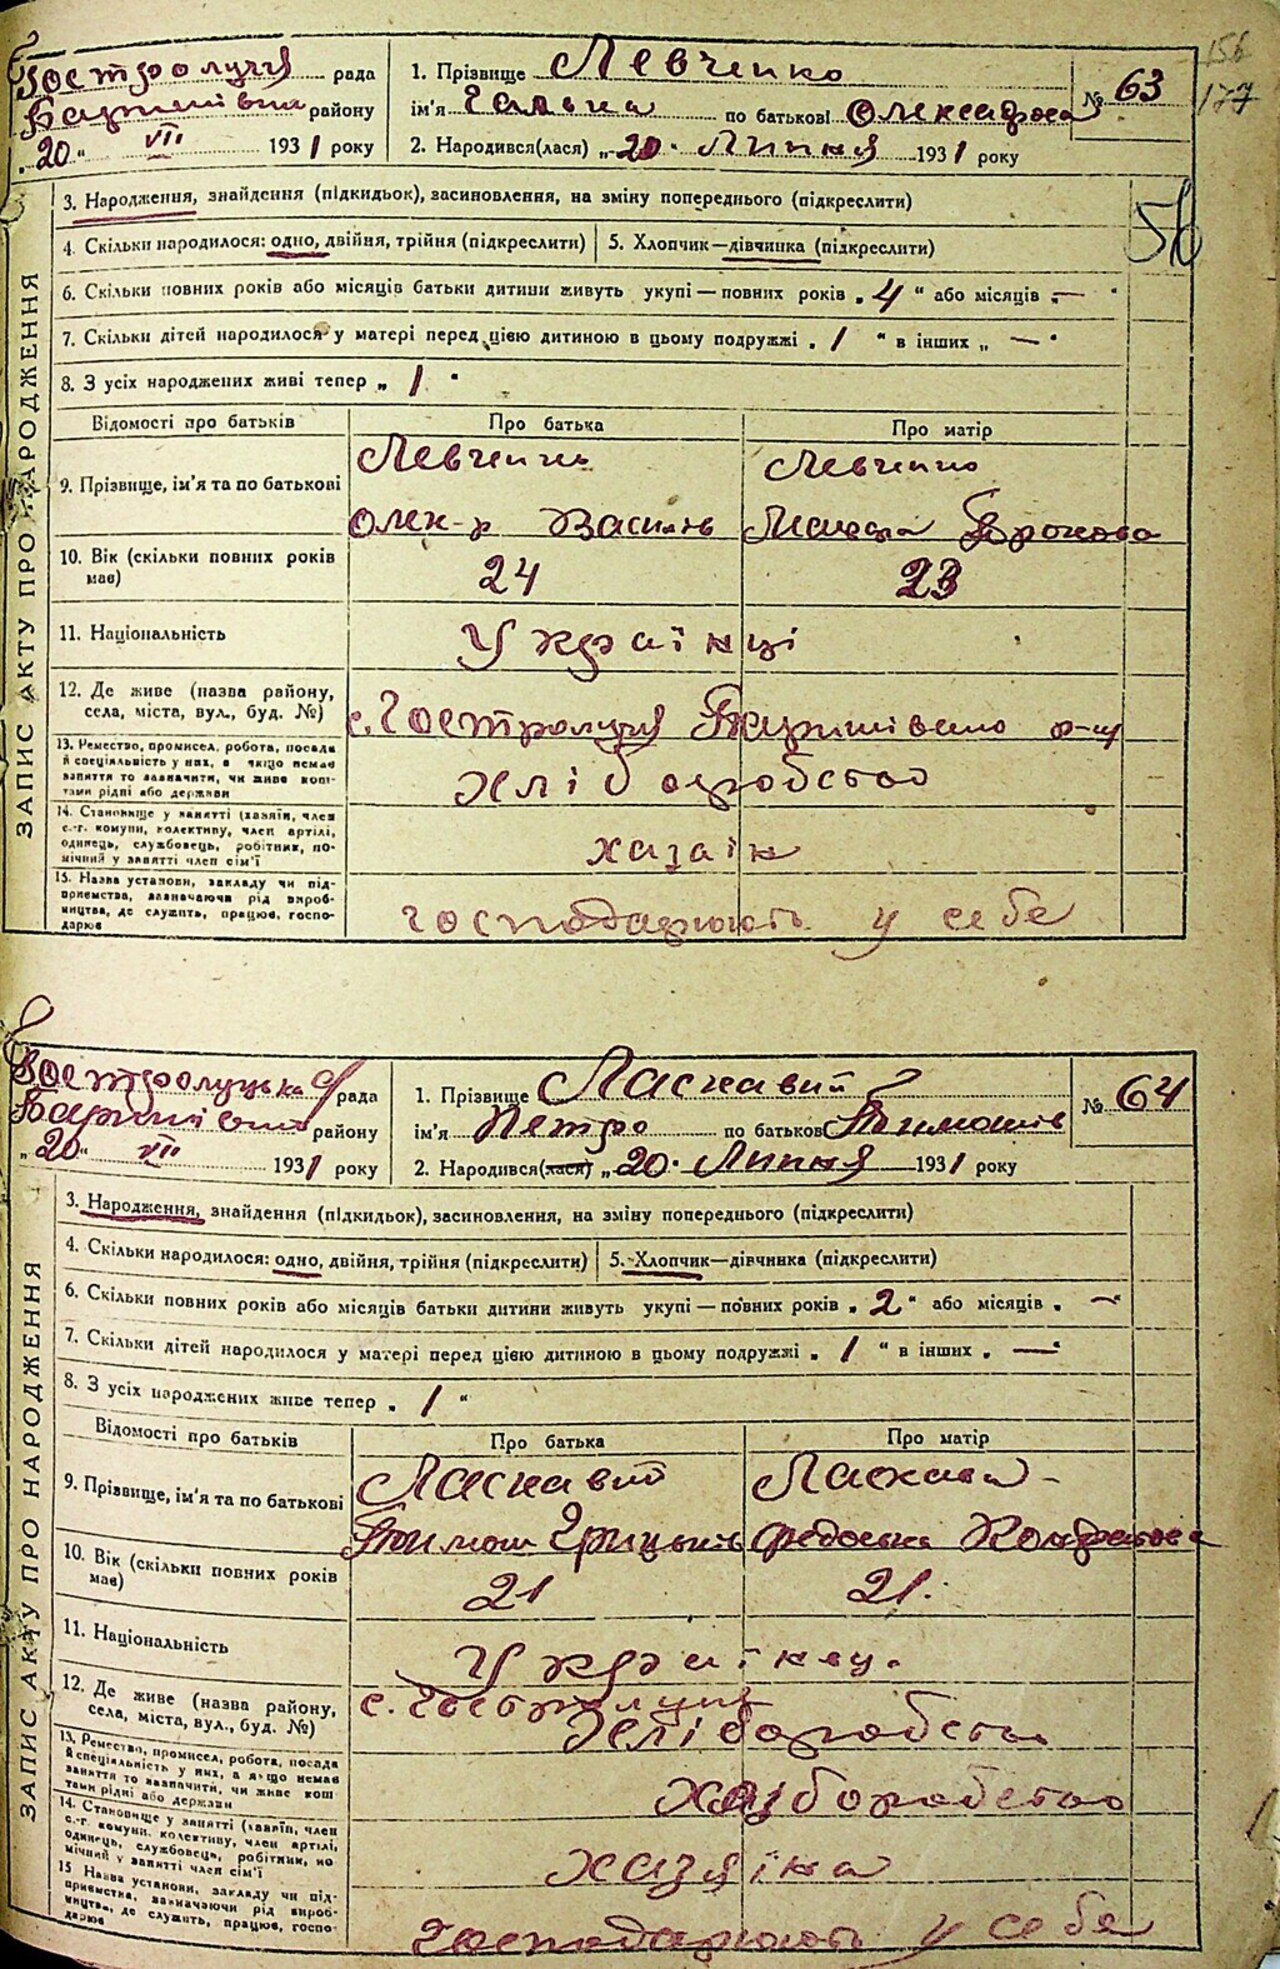 156
177
Гостролуччя рада
Баришівськ району
„20“ VII 1931 року
1. Прізвище Левченко
ім'я Галька по батькові Олександрова
№ 63
2. Народився(лася) „20“ Липня 1931 року
ЗАПИС АКТУ ПРО НАРОДЖЕННЯ
3. Народження, знайдення (підкидьок), засиновлення, на зміну попереднього (підкреслити)
56
4. Скільки народилося: одно, двійня, трійня (підкреслити) 5. Хлопчик—дівчинка (підкреслити)
6. Скільки повних років або місяців батьки дитини живуть укупі — повних років „4“ або місяців „—“
7. Скільки дітей народилося у матері перед цією дитиною в цьому подружжі „1“ в інших „—“
8. З усіх народжених живі тепер „1“
Відомості про батьків Про батька Про матір
9. Прізвище, ім'я та по батькові
Левченко Левченко
Олек-р Василів
10. Вік (скільки повних років має) 24 23
11. Національність Українці
12. Де живе (назва району,
села, міста, вул., буд. №) с. Гостролуччя р-ну
13. Ремество, промисел, робота, посада
й спеціальність у них, а якщо немає
заняття то зазначити, чи живе кош-
тами рідні або держави
хліборобство
14. Становище у занятті (хазяїн, член
с.-г. комуни, колективу, член артілі,
одинець, службовець, робітник, по-
мічний у занятті член сім'ї
хазаїн
15. Назва установи, закладу чи під-
приємства, зазначаючи рід вироб-
ництва, де служить, працює, госпо-
дарює
господарюють у себе
Гостролуцька рада
Баришівськ району
„20“ VII 1931 року
1. Прізвище Ласкавий
ім'я Петро по батькові Тимошів
№ 64
2. Народився(лася) „20“ Липня 1931 року
ЗАПИС АКТУ ПРО НАРОДЖЕННЯ
3. Народження, знайдення (підкидьок), засиновлення, на зміну попереднього (підкреслити)
4. Скільки народилося: одно, двійня, трійня (підкреслити) 5. Хлопчик—дівчинка (підкреслити)
6. Скільки повних років або місяців батьки дитини живуть укупі — повних років „2“ або місяців „—“
7. Скільки дітей народилося у матері перед цією дитиною в цьому подружжі „1“ в інших „—“
8. З усіх народжених живе тепер „1“
Відомості про батьків Про батька Про матір
9. Прізвище, ім'я та по батькові
Ласкавий Ласкава
Тимош Грицьків Федоська Кондратова
10. Вік (скільки повних років має) 21 21.
11. Національність Українц.
12. Де живе (назва району,
села, міста, вул., буд. №)
с. Гостролуччя
Хліборобство
13. Ремество, промисел, робота, посада
й спеціальність у них, а якщо немає
заняття то зазначити, чи живе кош
тами рідні або держави
14. Становище у занятті (хазяїн, член
с.-г. комуни. колективу, член артілі,
одинець, службовець, робітник, по
мічний у занятті член сім'ї
хазяїна
15 Назва установи, закладу чи під-
приємства, зазначаючи рід вироб-
ництва, де служить, працює, госпо-
дарює
господарюють у себе